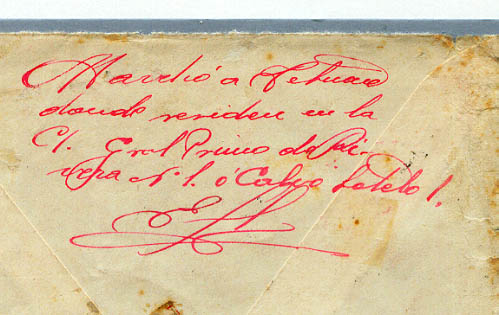 Marchó a Tetuan
donde residen en la
C/. Gral Primo de Ri-
vera Nº 1. ó Calvo Sotelo 1.